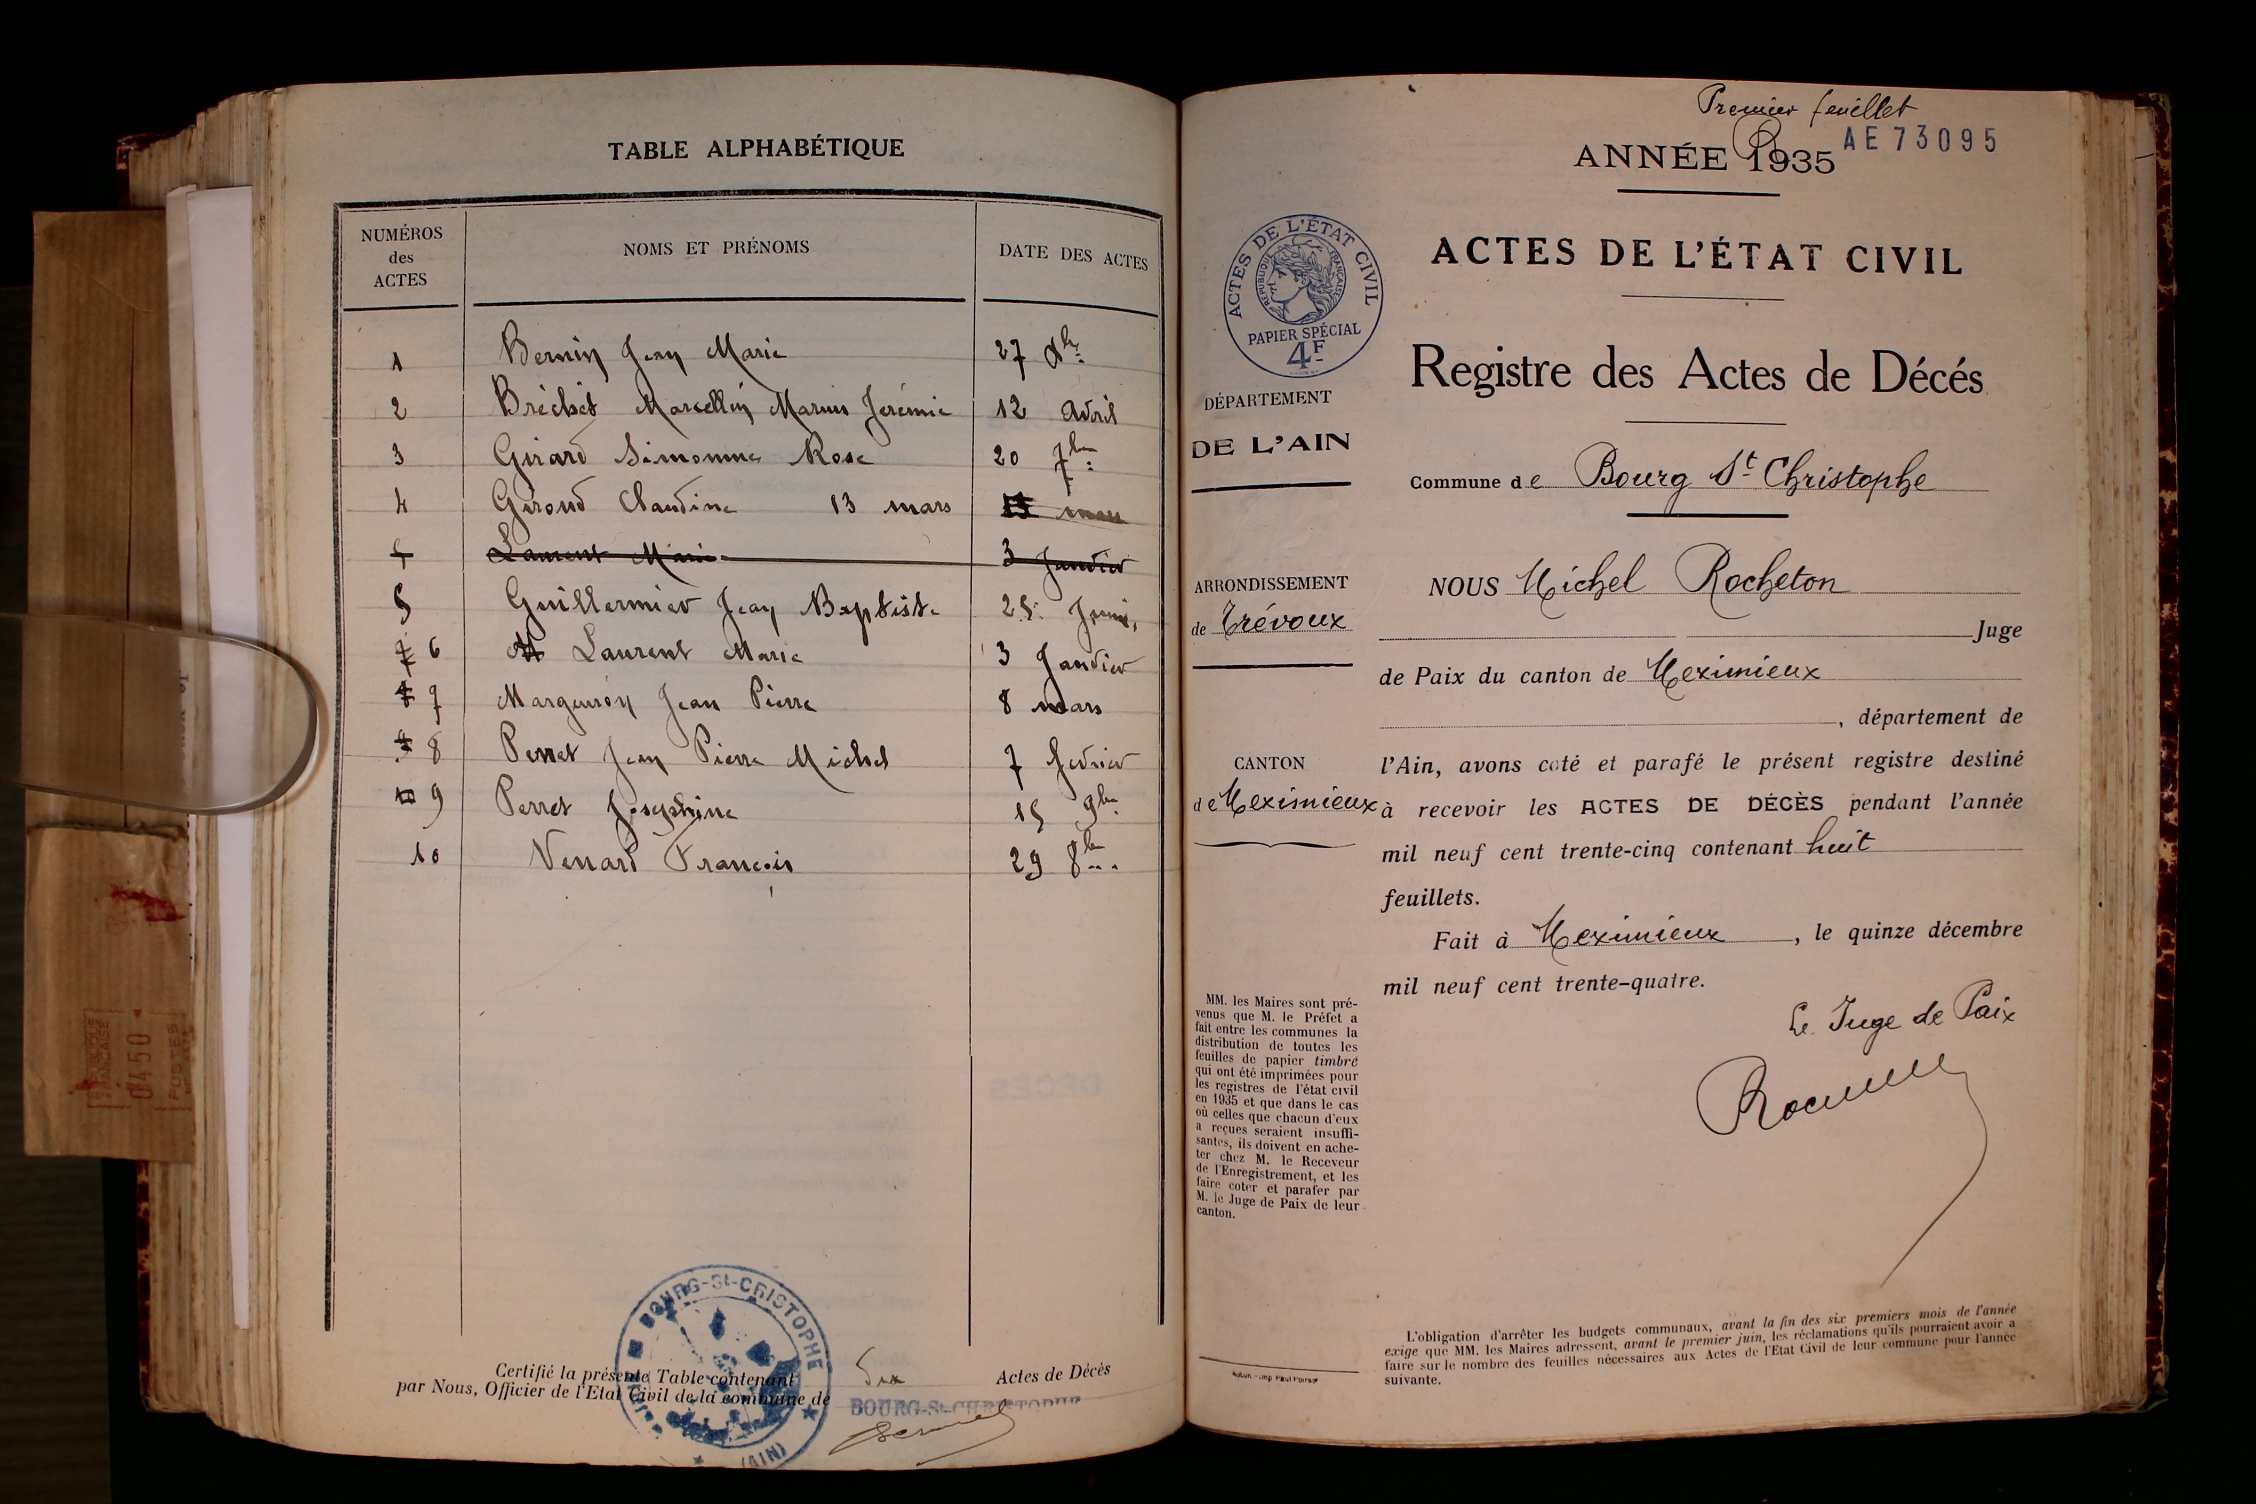 TABLE ALPHABÉTIQUE
NUMÉROS des ACTES
NOMS ET PRÉNOMS
DATE DES ACTES
1 Bernin Jean Marie 27
2 Bréchet Marcellin Marius Jérémie 12 Avril
3 Girard Simonne Rose 20 7bre
4 Giroud Claudine 13 mars 13 mars
5 Laurent Marie 3 Janvier
5 Guillermier Jean Baptiste 25 Juin
6 Laurent Marie 3 Janvier
7 Margueron Jean Pierre 8 mars
8 Perret Jean Pierre Michel 7 février
9 Perret Joséphine 15 9bre
10 Venard François 29 8bre
BOURG-St-CRISTOPHE
(AIN)
Certifié la présente Table contenant Dix Actes de Décès
par Nous, Officier de l'Etat Civil de la commune de BOURG-St-CHRISTOPHE
0450
POSTES
Premier feuillet
ANNÉE 1935 AE 73095
ACTES DE L'ÉTAT CIVIL
RÉPUBLIQUE FRANÇAISE
PAPIER SPÉCIAL
4F
ACTES DE L'ÉTAT CIVIL
Registre des Actes de Décés
DÉPARTEMENT
DE L'AIN
Commune de Bourg St Christophe
ARRONDISSEMENT
de Trévoux
CANTON
de Meximieux
NOUS Michel Rocheton
Juge
de Paix du canton de Meximieux
, département de
l'Ain, avons coté et parafé le présent registre destiné
à recevoir les ACTES DE DÉCÈS pendant l'année
mil neuf cent trente-cinq contenant huit
feuillets.
Fait à Meximieux, le quinze décembre
mil neuf cent trente-quatre.
Le Juge de Paix
MM. les Maires sont pré-
venus que M. le Préfet a
fait entre les communes la
distribution de toutes les
feuilles de papier timbré
qui ont été imprimées pour
les registres de l'état civil
en 1935 et que dans le cas
où celles que chacun d'eux
a reçues seraient insuffi-
santes, ils doivent en ache-
ter chez M. le Receveur
de l'Enregistrement, et les
faire coter et parafer par
M. le Juge de Paix de leur
canton.
L'obligation d'arrêter les budgets communaux, avant la fin des six premiers mois de l'année
exige que MM. les Maires adressent, avant le premier juin, les réclamations qu'ils pourraient avoir a
faire sur le nombre des feuilles nécessaires aux Actes de l'Etat Civil de leur commune pour l'année
suivante.